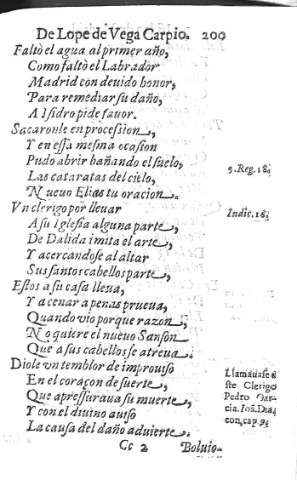 De Lope de Vega Carpio. 200
Faltò el agua al primer año,
Como faltò el Labrador
Madrid con deuido honor,
Para remediar su daño,
A Isidro pide fauor.
Sacaronle en procession,
Y en essa mesma ocasion
Pudo abrir bañando el suelo,
Las cataratas del cielo,
3. Reg. 18.
Nueuo Elias tu oracion.
Vn clerigo por lleuar
Iudic. 16.
A su Iglesia alguna parte,
De Dalida imita el arte,
Y acercandose al altar
Sus santos cabellos parte,
Estos a su casa lleua,
Y a cenar a penas prueua,
Quando vio porque razon,
No quiere el nueuo Sanson
Que a sus cabellos se atreua.
Diole vn temblor de improuiso
En el coraçon de suerte,
Que apressuraua su muerte,
Y con el diuino auiso
La causa del daño aduierte.
Llamauase
ste Clerigo
Pedro Gar-
cia. Ioã. Dia
con, cap. 94
Cc 2 Boluio-